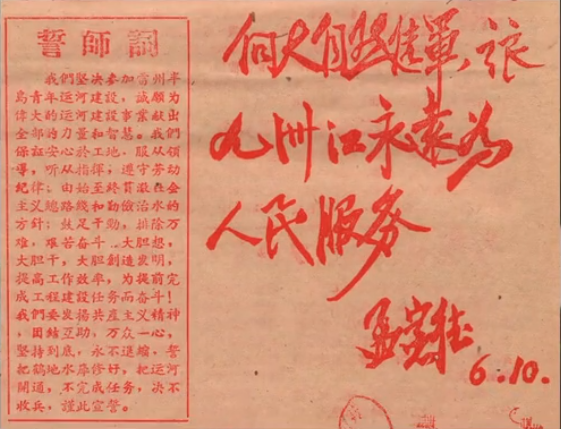 誓師詞
我們坚决参加雷州半
島青年运河建設，誠願为
偉大的运河建設事業献出
全部的力量和智慧。我們
保証安心於工地，服从領
導，听从指揮，遵守劳动
紀律；由始至終貫澈社会
主义總路綫和勤儉治水的
方針；鼓足干勁，排除万
难，艰苦奋斗，大胆想，
大胆干，大胆創造发明，
提高工作效率，为提前完
成工程建設任务而奋斗！
我們要发揚共產主义精神
，团結互助，万众一心，
堅持到底，永不退縮，誓
把鶴地水庫修好，把运河
開通，不完成任务，决不
收兵，謹此宣誓。
向大自然進軍，讓
九洲江永遠为
人民服务
6.10.